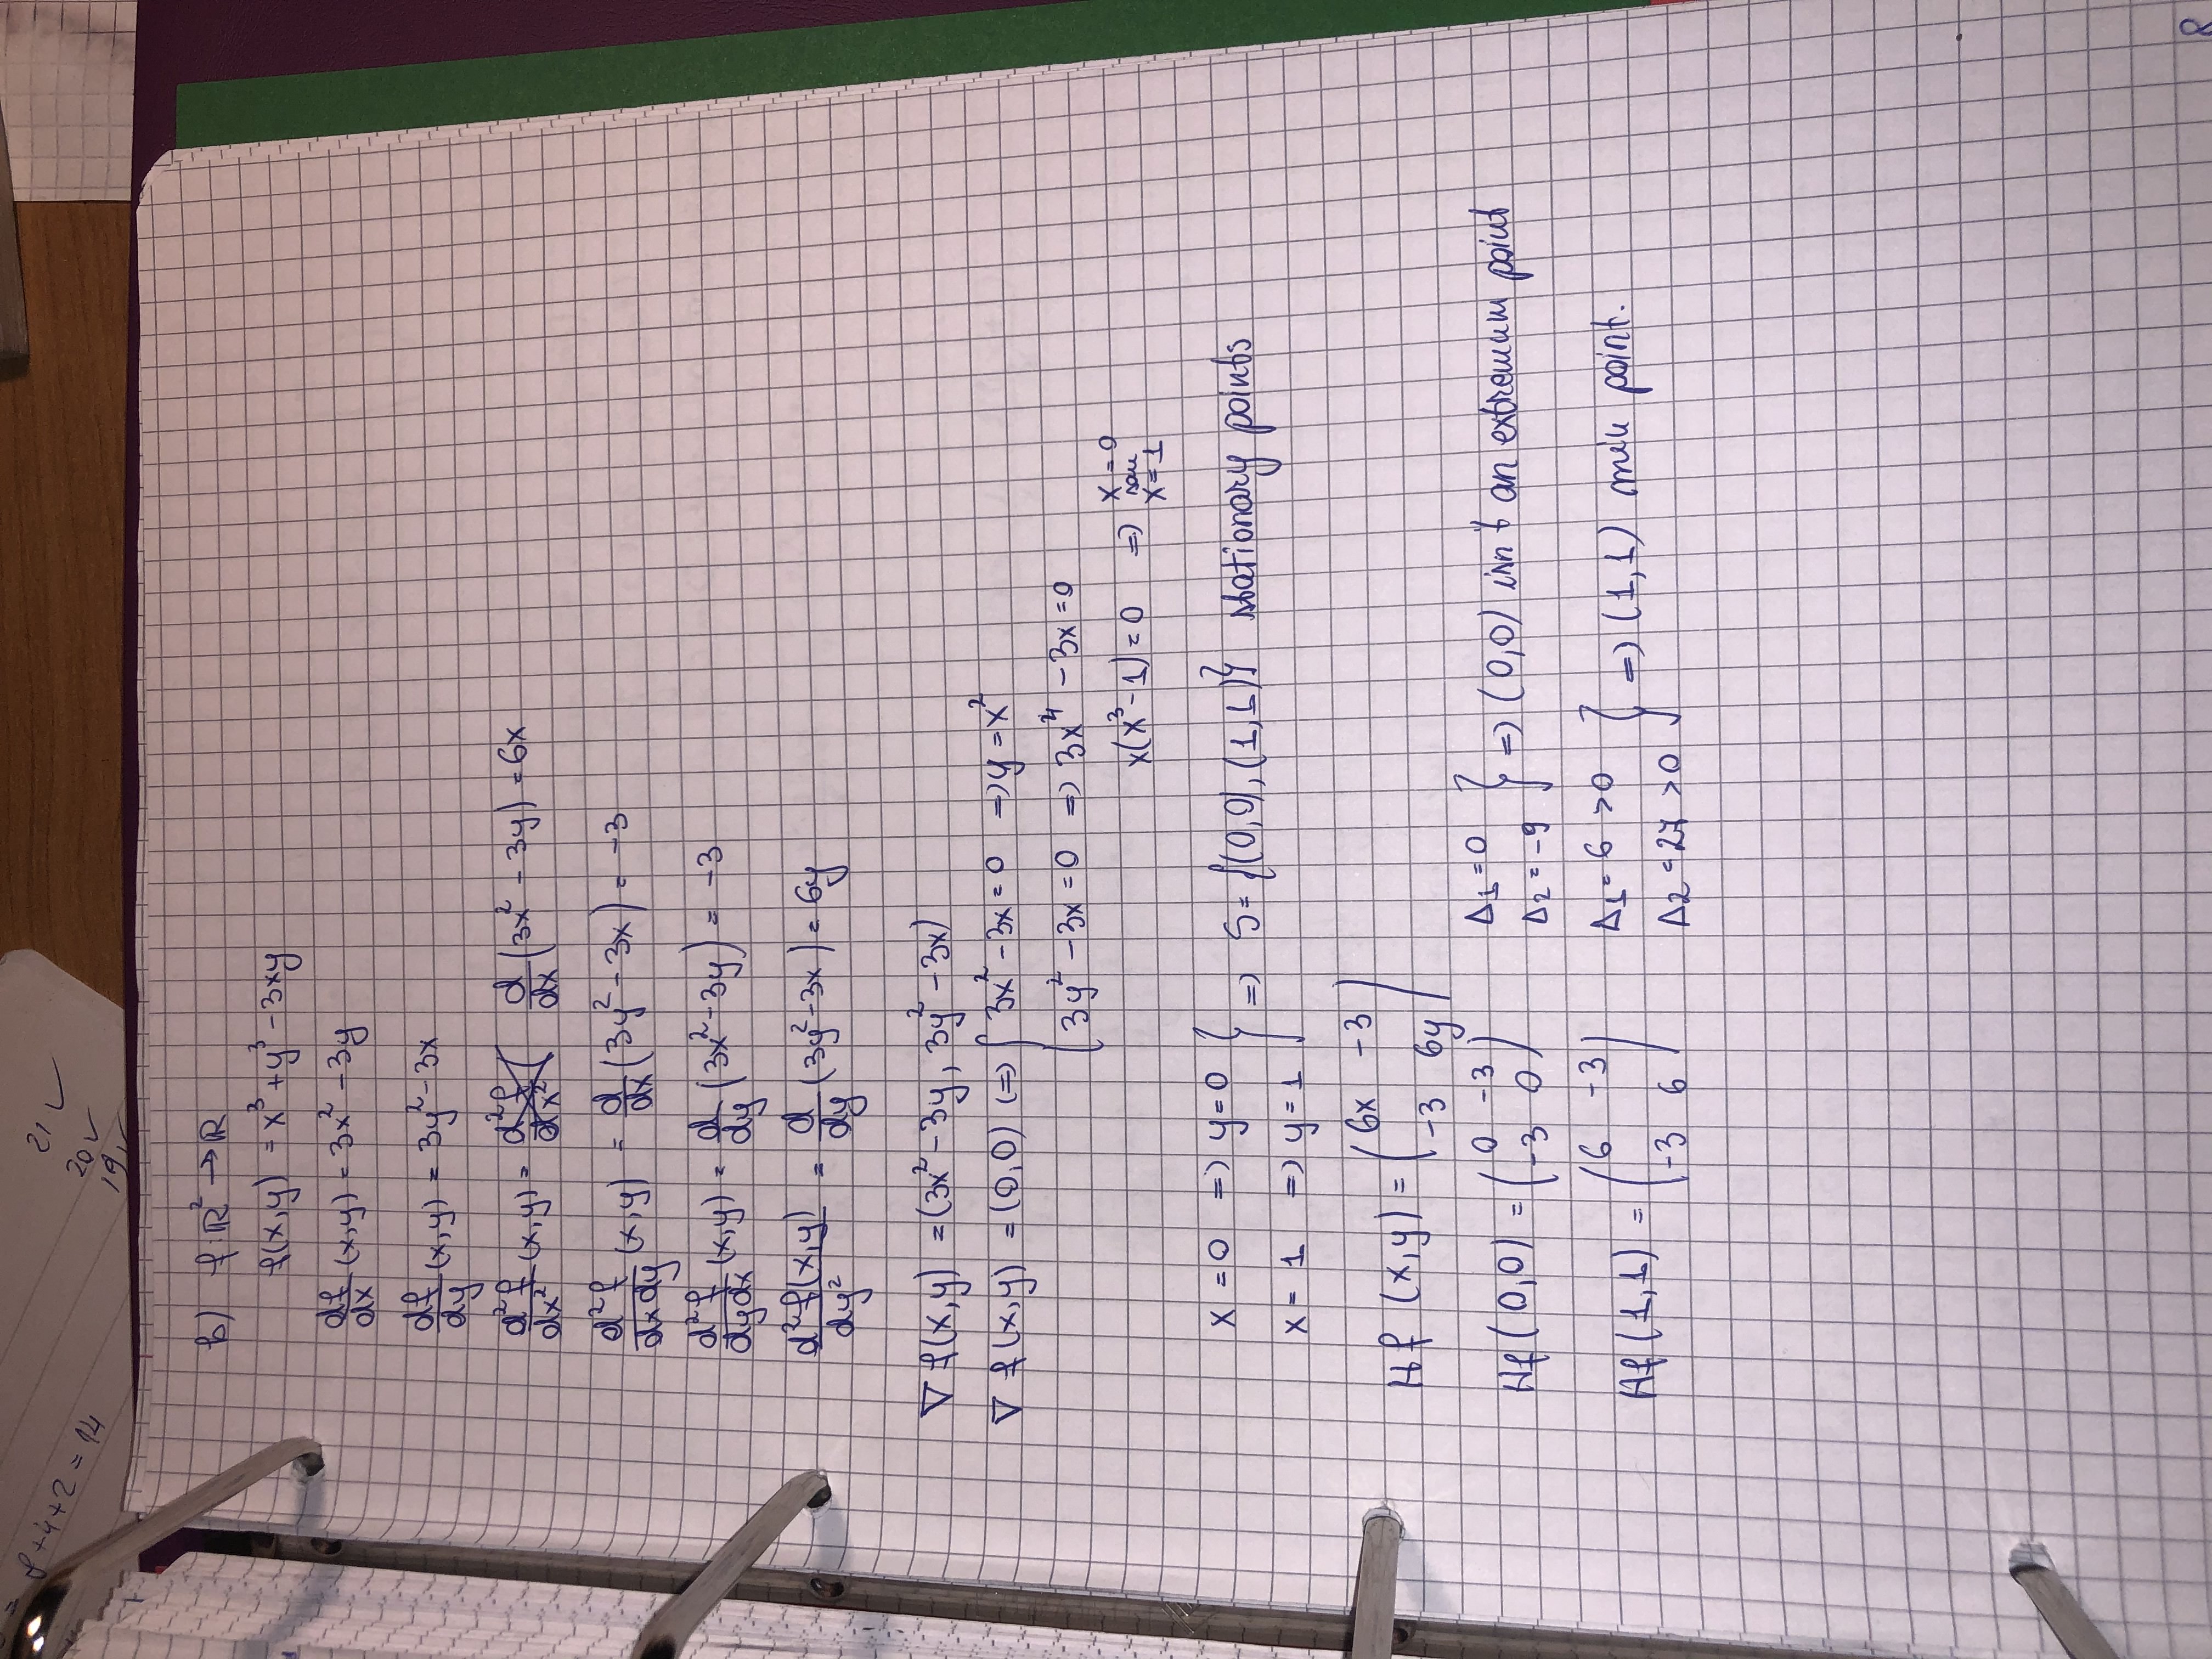 8+4+2=14
21 ✓
20 ✓
19 ✓
b) f: ℝ² → ℝ
f(x,y) = x³ + y³ - 3xy
df/dx (x,y) = 3x² - 3y
df/dy (x,y) = 3y² - 3x
d²f/dx² (x,y) = d/dx (3x² - 3y) = 6x
d²f/dxdy (x,y) = d/dx (3y² - 3x) = -3
d²f/dydx (x,y) = d/dy (3x² - 3y) = -3
d²f(x,y)/dy² = d/dy (3y² - 3x) = 6y
∇ f(x,y) = (3x² - 3y, 3y² - 3x)
∇ f(x,y) = (0,0) (=> { 3x² - 3x = 0 => y = x²
3y² - 3x = 0 => 3x⁴ - 3x = 0
x(x³ - 1) = 0 => x = 0
sau
x = 1
x = 0 => y = 0
} => S = {(0,0), (1,1)} stationary points
x = 1 => y = 1
Hf (x,y) = ( 6x -3
-3 6y )
Hf (0,0) = ( 0 -3
-3 0 )
Δ1 = 0
Δ2 = -9
} => (0,0) isn't an extremum point
Hf (1,1) = ( 6 -3
-3 6 )
Δ1 = 6 > 0
Δ2 = 27 > 0
} => (1,1) min point.
8